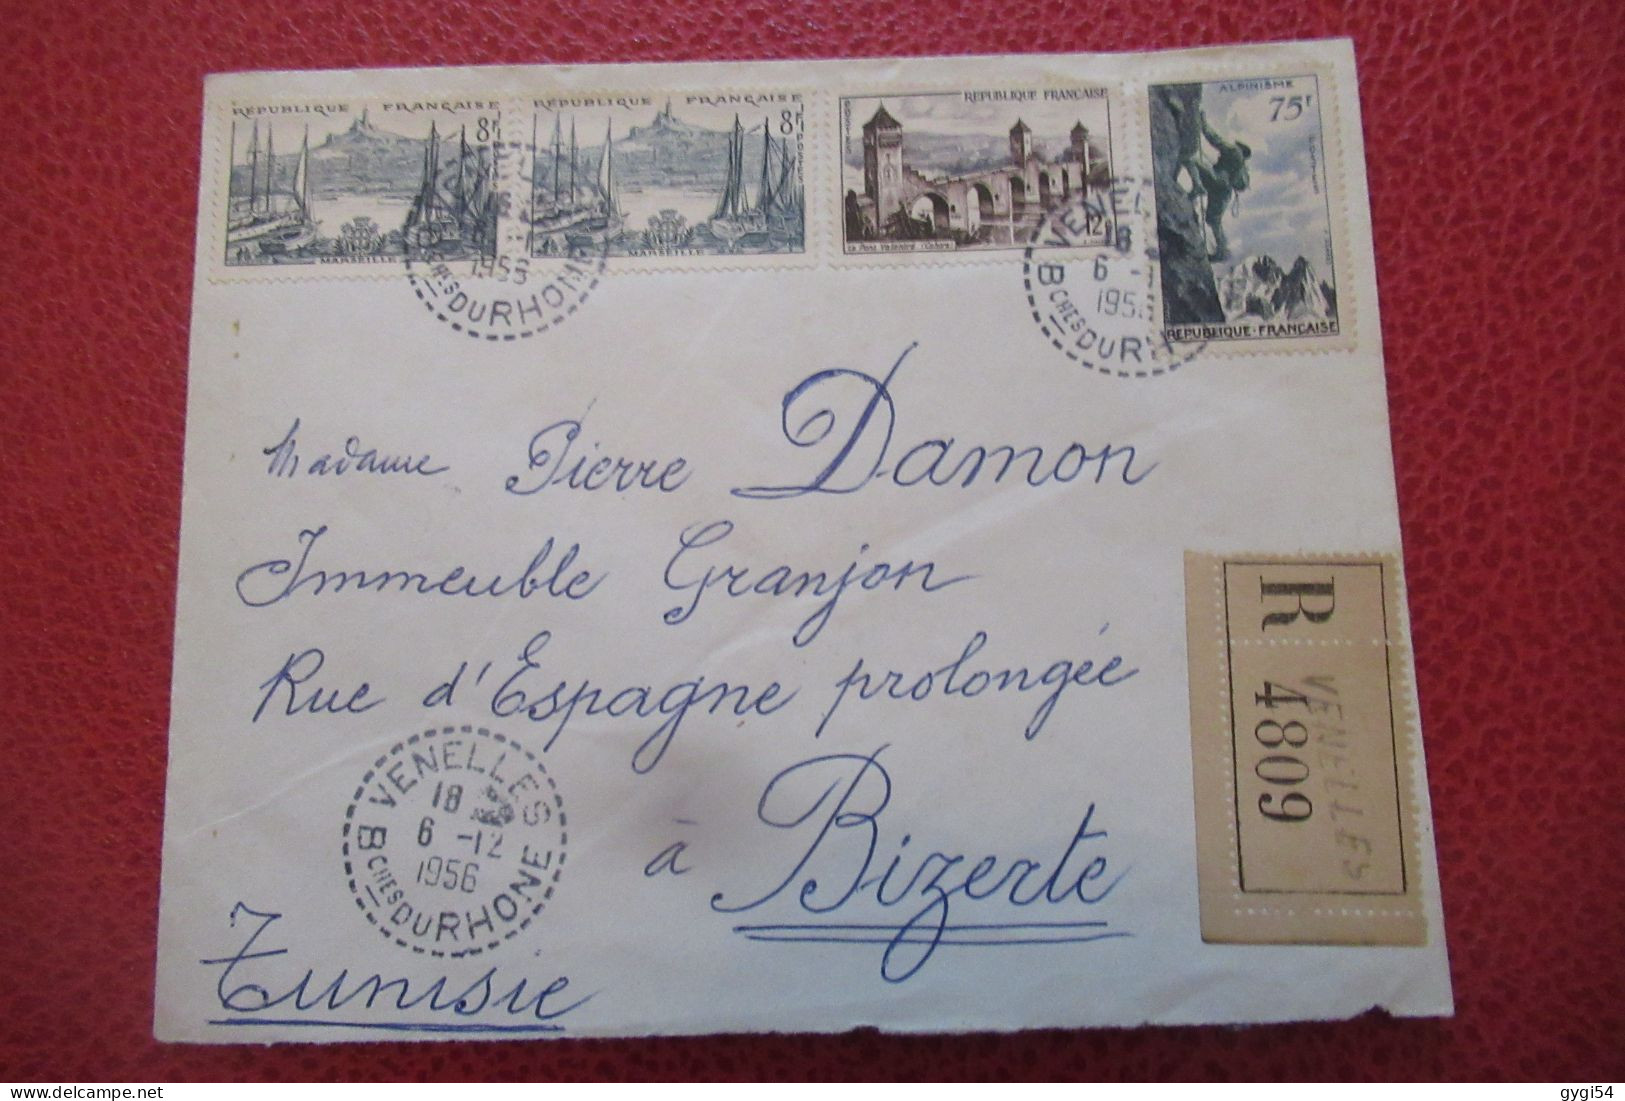 RÉPUBLIQUE FRANÇAISE
8F
POSTES
MARSEILLE
RÉPUBLIQUE FRANÇAISE
8F
POSTES
MARSEILLE
REPUBLIQUE FRANÇAISE
12F
Le Pont Valentré (Cahors)
ALPINISME
75F
REPUBLIQUE-FRANÇAISE
1956
BCHES DU RHONE
VENE
18
6 -
195
BCHES DU R
Madame Pierre Damon
Immeuble Granjon
Rue d'Espagne prolongée
à Bizerte
Tunisie
VENELLES
18
6 -12
1956
BCHES DU RHONE
R 4809
VENELLES
gygi54